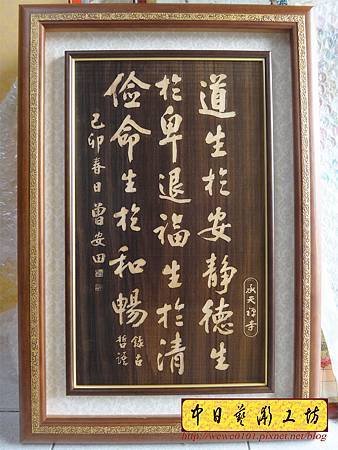 道生於安靜德生
於卑退福生於清
儉命生於和暢
錄古
哲語
己卯春日曾安田
承天禪寺
中日藝雕工坊
http://wewe0101.pixnet.net/blog